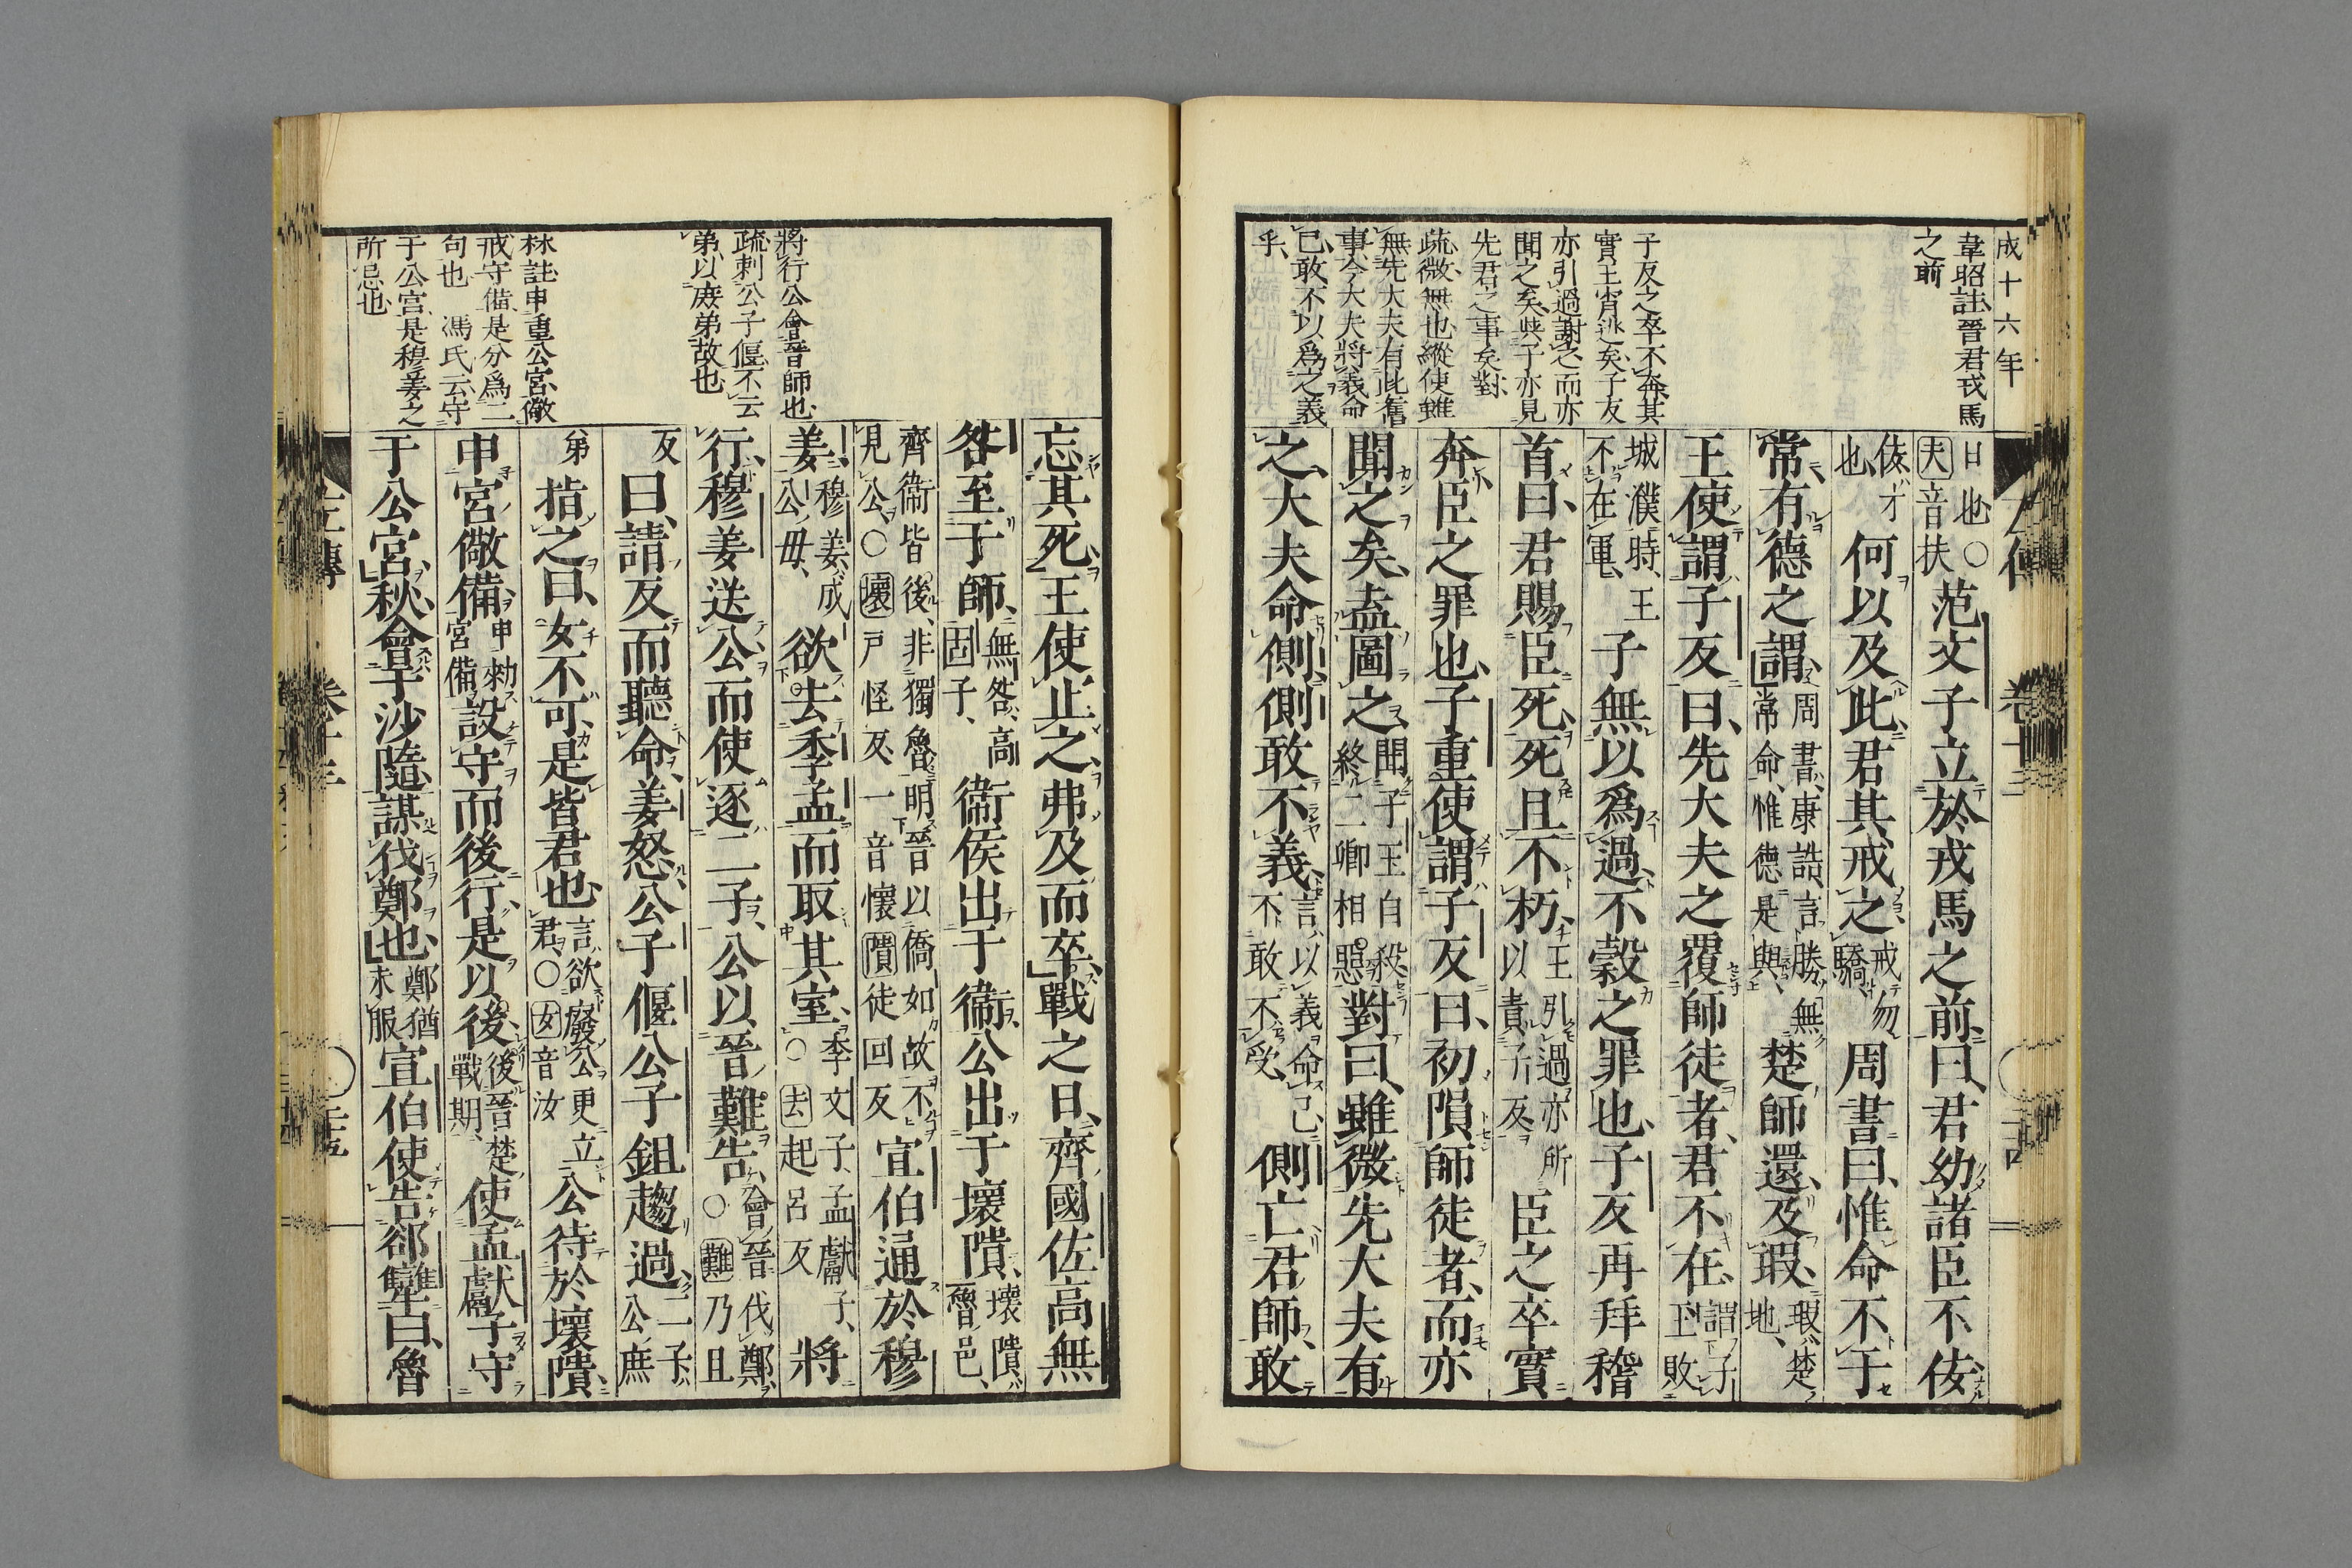 成十六年
韋昭註晉君戎馬
之前
子反之卒不奔其
實王宵逃矣子友
亦引過謝之而亦
聞之矣此子亦見
先君之事矣對
疏微無也縱使雖
無先大夫有此舊
事今大夫將義命
已敢不以爲之義
乎
日也○范文子立於戎馬之前曰君幼諸臣不佞
夫音扶
佞才何以及此君其戒之戒勿周書曰惟命不于
也驕
常有德之謂周書康誥言勝無楚師還及瑕瑕楚
常命惟德是與地
王使謂子反曰先大夫之覆師徒者君不在謂子
王敗
城濮時王子無以爲過不穀之罪也子友再拜稽
不在軍
首曰君賜臣死死且不朽王引過亦所臣之卒實
以責子反
奔臣之罪也子重使謂子反曰初隕師徒者而亦
聞之矣盍圖之聞子玉自殺對曰雖微先大夫有
終二卿相惡
之大夫命側側敢不義言以義命己側亡君師敢
不敢不受
忘其死王使止之弗及而卒戰之日齊國佐高無
咎至于師無咎高衞侯出于衞公出于壞隤壞隤
固子魯邑
齊衞皆後非獨魯明晉以僑如故不宣伯通於穆
見公○壞戸怪反一音懷隤徒回反
姜穆姜成欲去季孟而取其室季文子孟獻子將
公母○去起呂反
行穆姜送公而使逐二子公以晉難告會晉伐鄭
○難乃旦
反曰請反而聽命姜怒公子偃公子鉏趨過二子
公庶
弟指之曰女不可是皆君也言欲廢公更立公待於壞隤
君○女音汝
申宮儆備申勑設守而後行是以後後晉楚使孟獻子守
宮備戰期
于公宮秋會于沙隨謀伐鄭也鄭猶宣伯使告郤犫曰魯
未服
將行公會晉師也
疏刺公子偃不云
弟以庶弟故也
林註申重公宮儆
戒守備是分爲二
句也 馮氏云守
于公宮是穆姜之
所忌也
左傳 卷十三